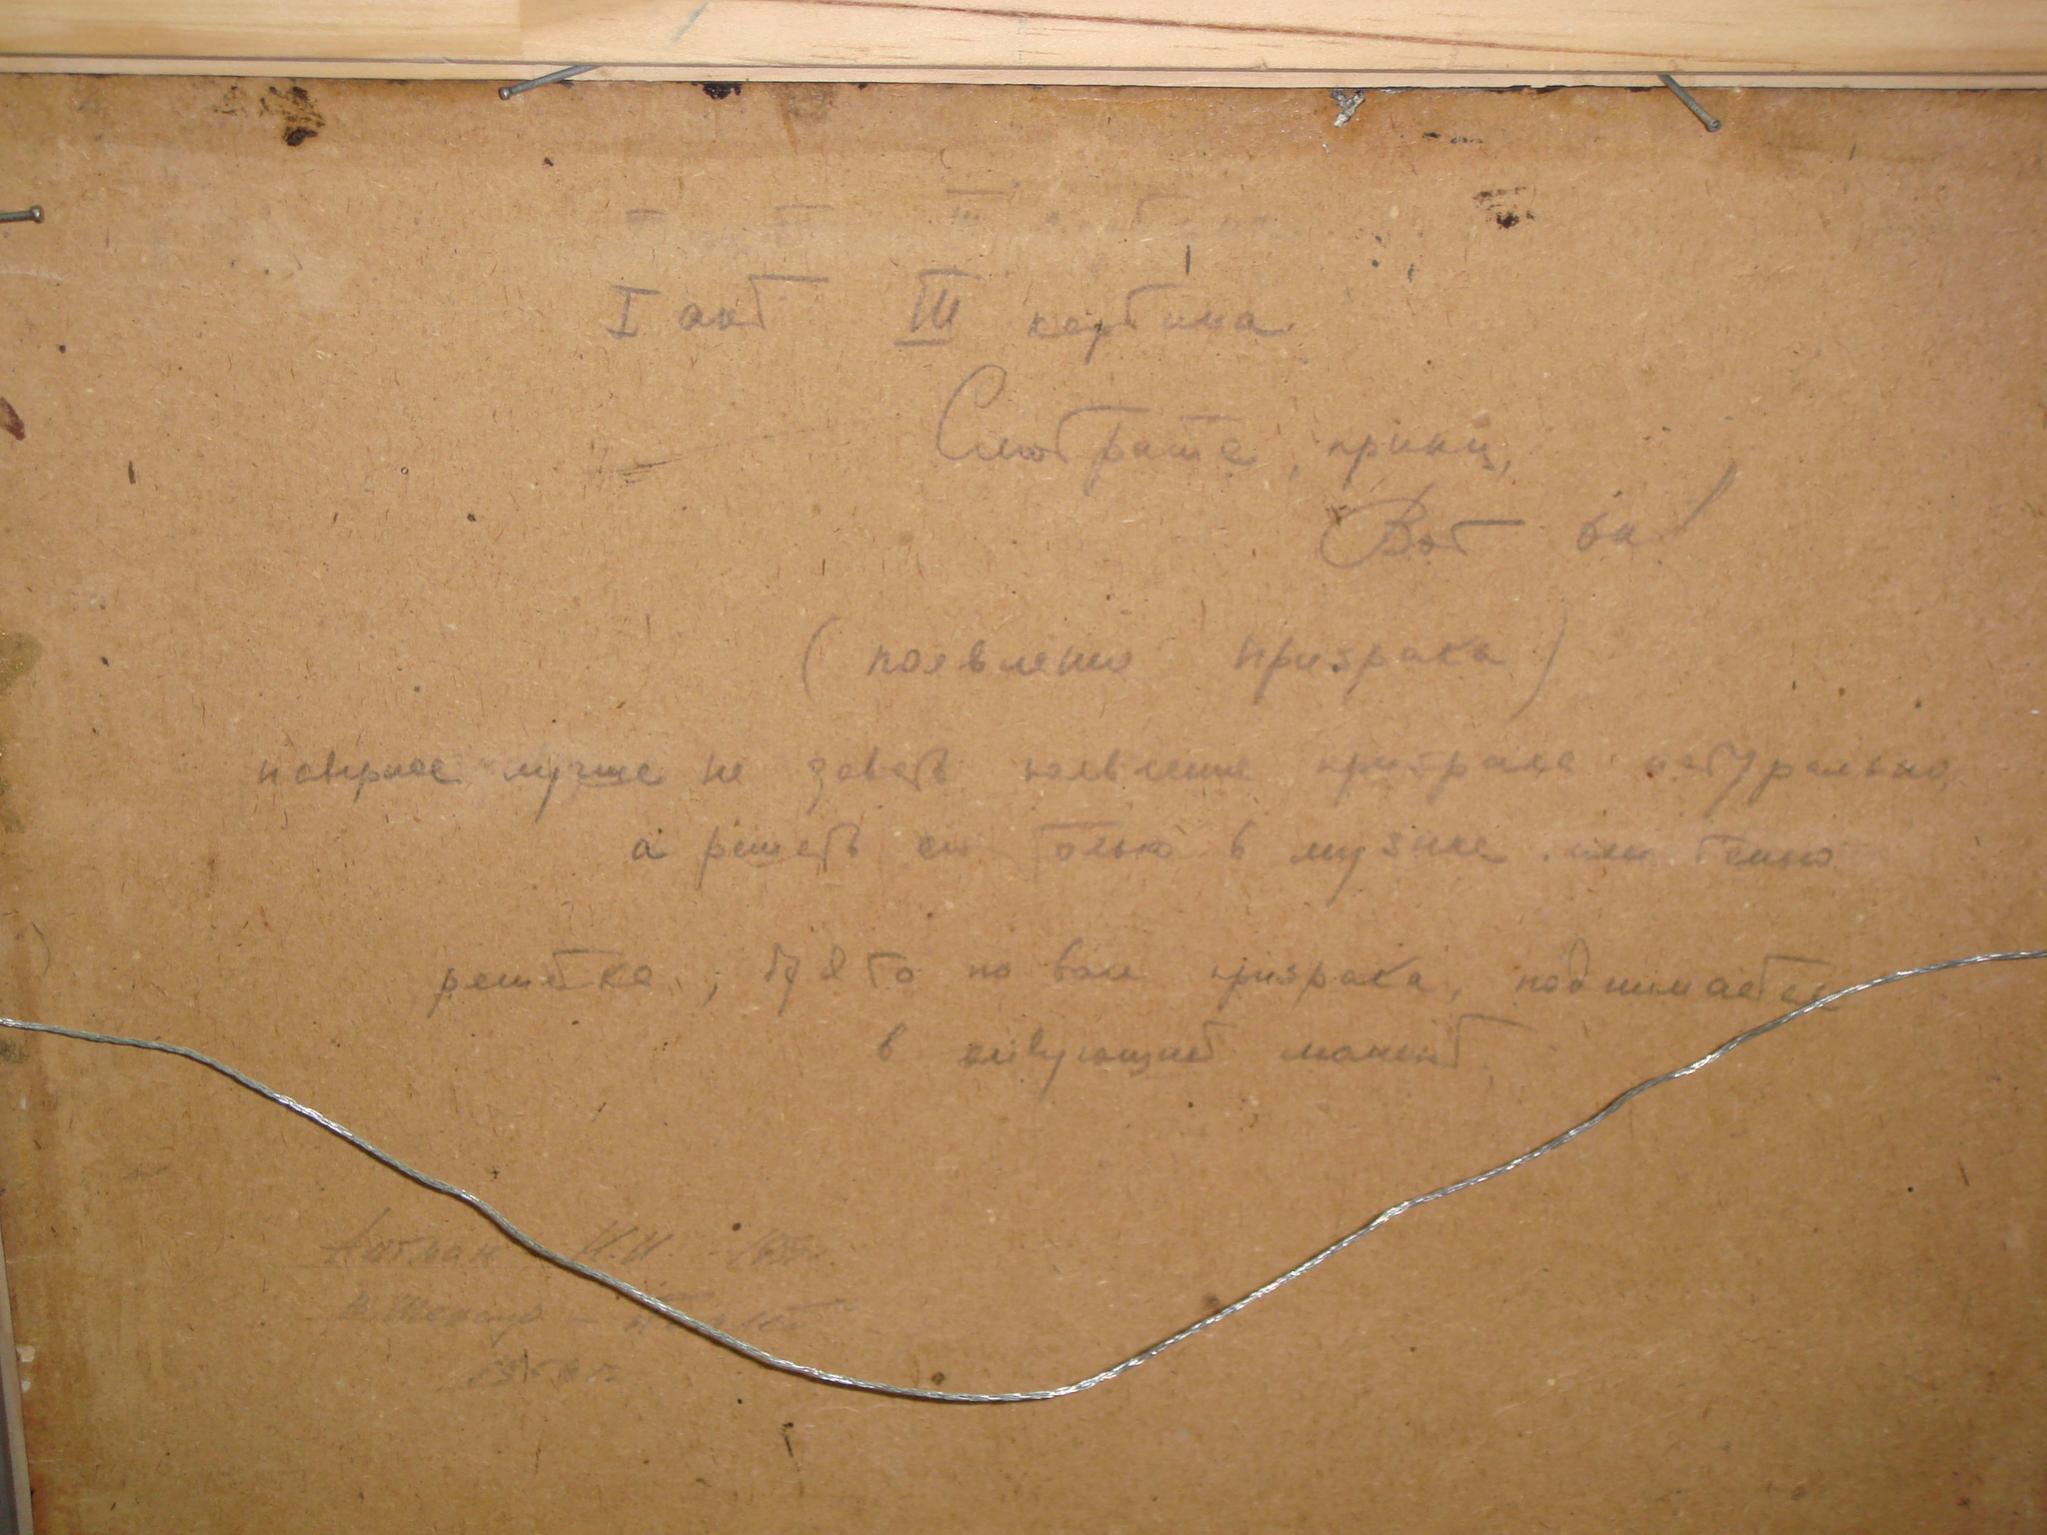 I акт III картина
Смотрите, принц,
Вот он!
(появление призрака)
наверное лучше не давать появление призрака натурально,
а решать его только в музыке. или темно
решетка, будто по воле призрака, поднимается
в следующий момент.
Альтман Н.И.
В. Шекспир -